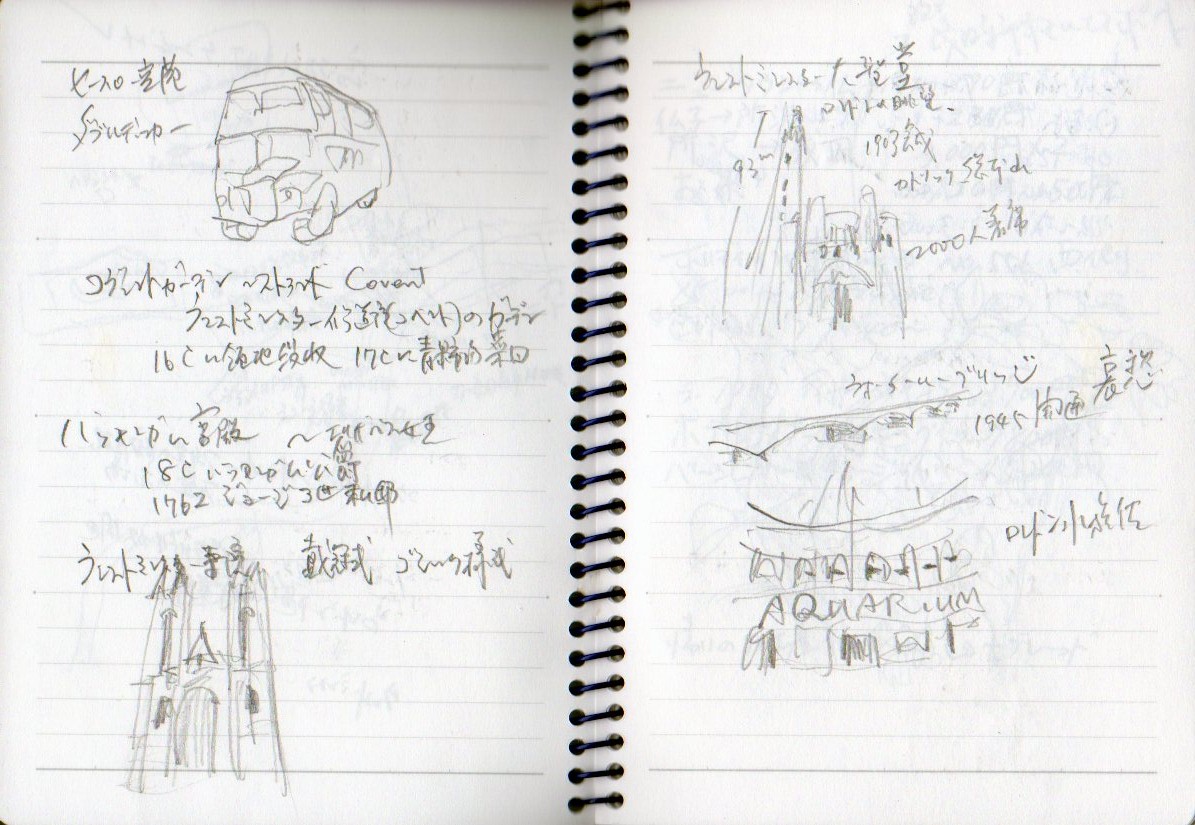 ヒースロー空港
ダブルデッカー
コヴェントガーデン 〜ストランド Covent
ウェストミンスター修道院(コベント)のガーデン
16Cに領地 17Cに 菜園
バッキンガム宮殿 〜
18C バッキンガム公爵
1762 ジョージ3世
ウェストミンスター寺院 戴冠式 ゴシック様式
ウェストミンスター大聖堂
ロンドンの眺望
93m
1903
カトリック総本山
2000人
ウォータールーブリッジ 哀愁
1945 開通
ロンドン
AQUARIUM